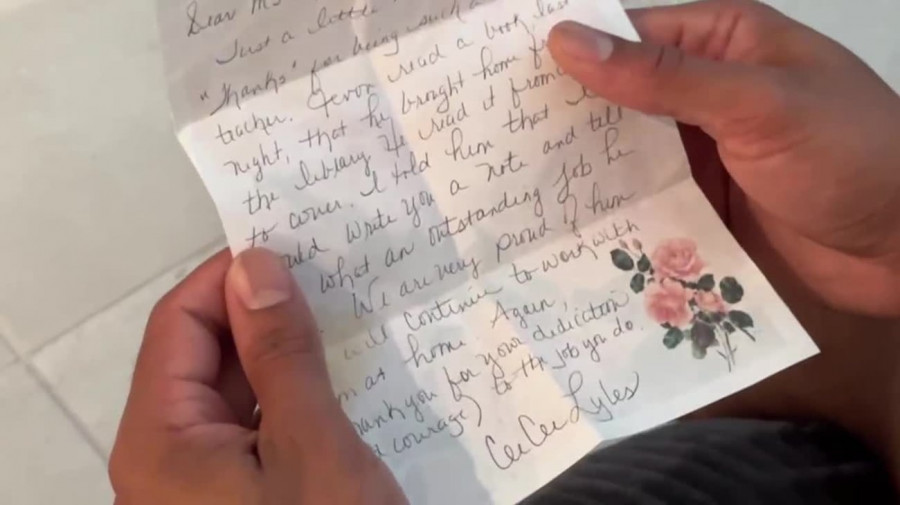 Dear Ms
Just a little
"thanks" for being such a
teacher. Jevon read a book last
night, that he brought home from
the library. He read it from
to cover. I told him that I
uld write you a note and tell
what an outstanding job he
We are very proud of him
will continue to work with
m at home. Again,
hank you for your dedication
d courage) to the job you do.
CeeCee Lyles